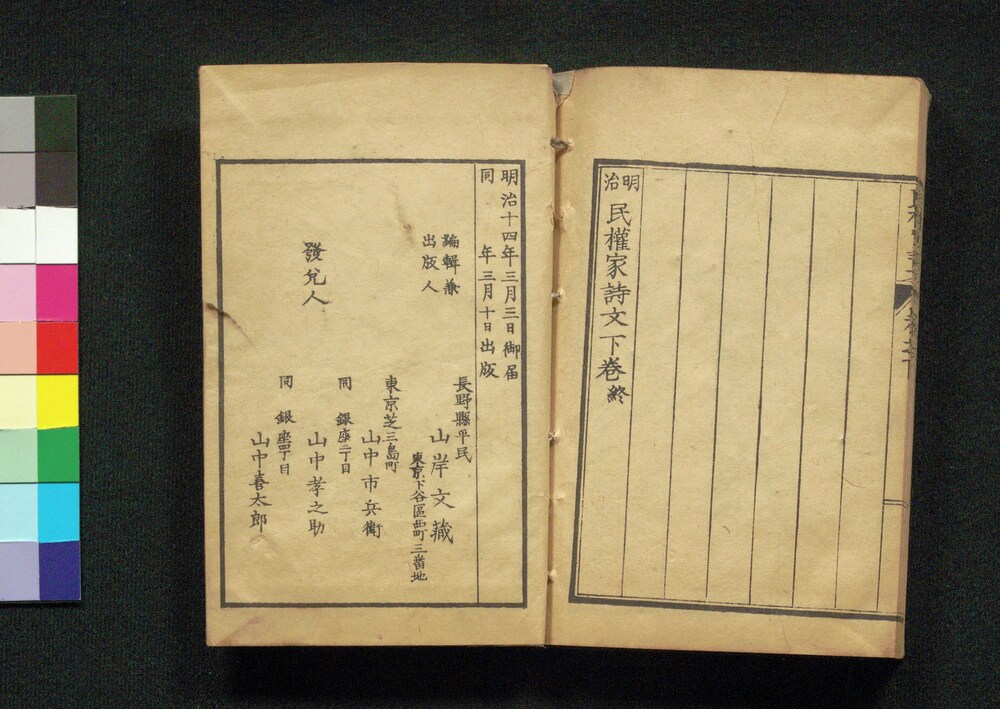 明治
民權家詩文下卷終
明治十四年三月三日御届
同年三月十日出版
編輯兼
出版人
長野縣平民
山岸文藏
東京下谷區西町三番地
發兌人
東京芝三島町
山中市兵衛
同銀座二丁目
山中孝之助
同銀座四丁目
山中喜太郎